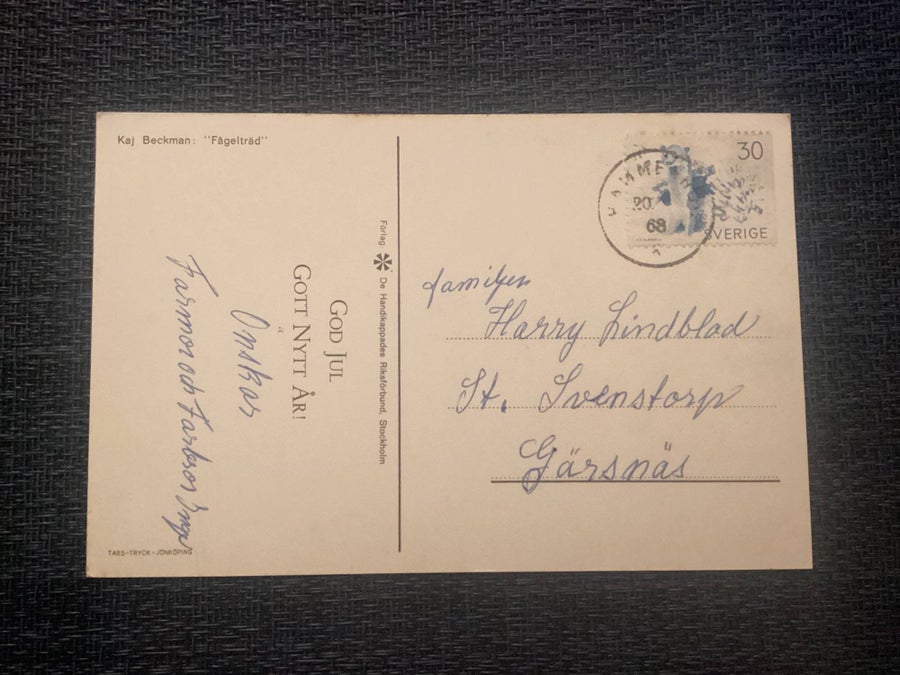 Kaj Beckman: "Fågelträd"
GOD JUL
GOTT NYTT ÅR!
Önskar
Farmor och Farbror Inge
TABS-TRYCK-JÖNKÖPING
Förlag De Handikappades Riksförbund, Stockholm
30
SVERIGE
20.
68
familjen
Harry Lindblad
St. Svenstorp
Gärsnäs